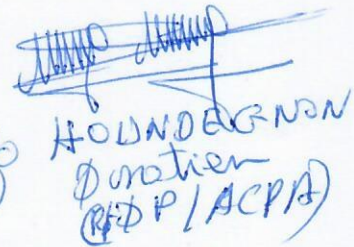 HOUNDEGNON
Donatien
(PFDP/ACPA)